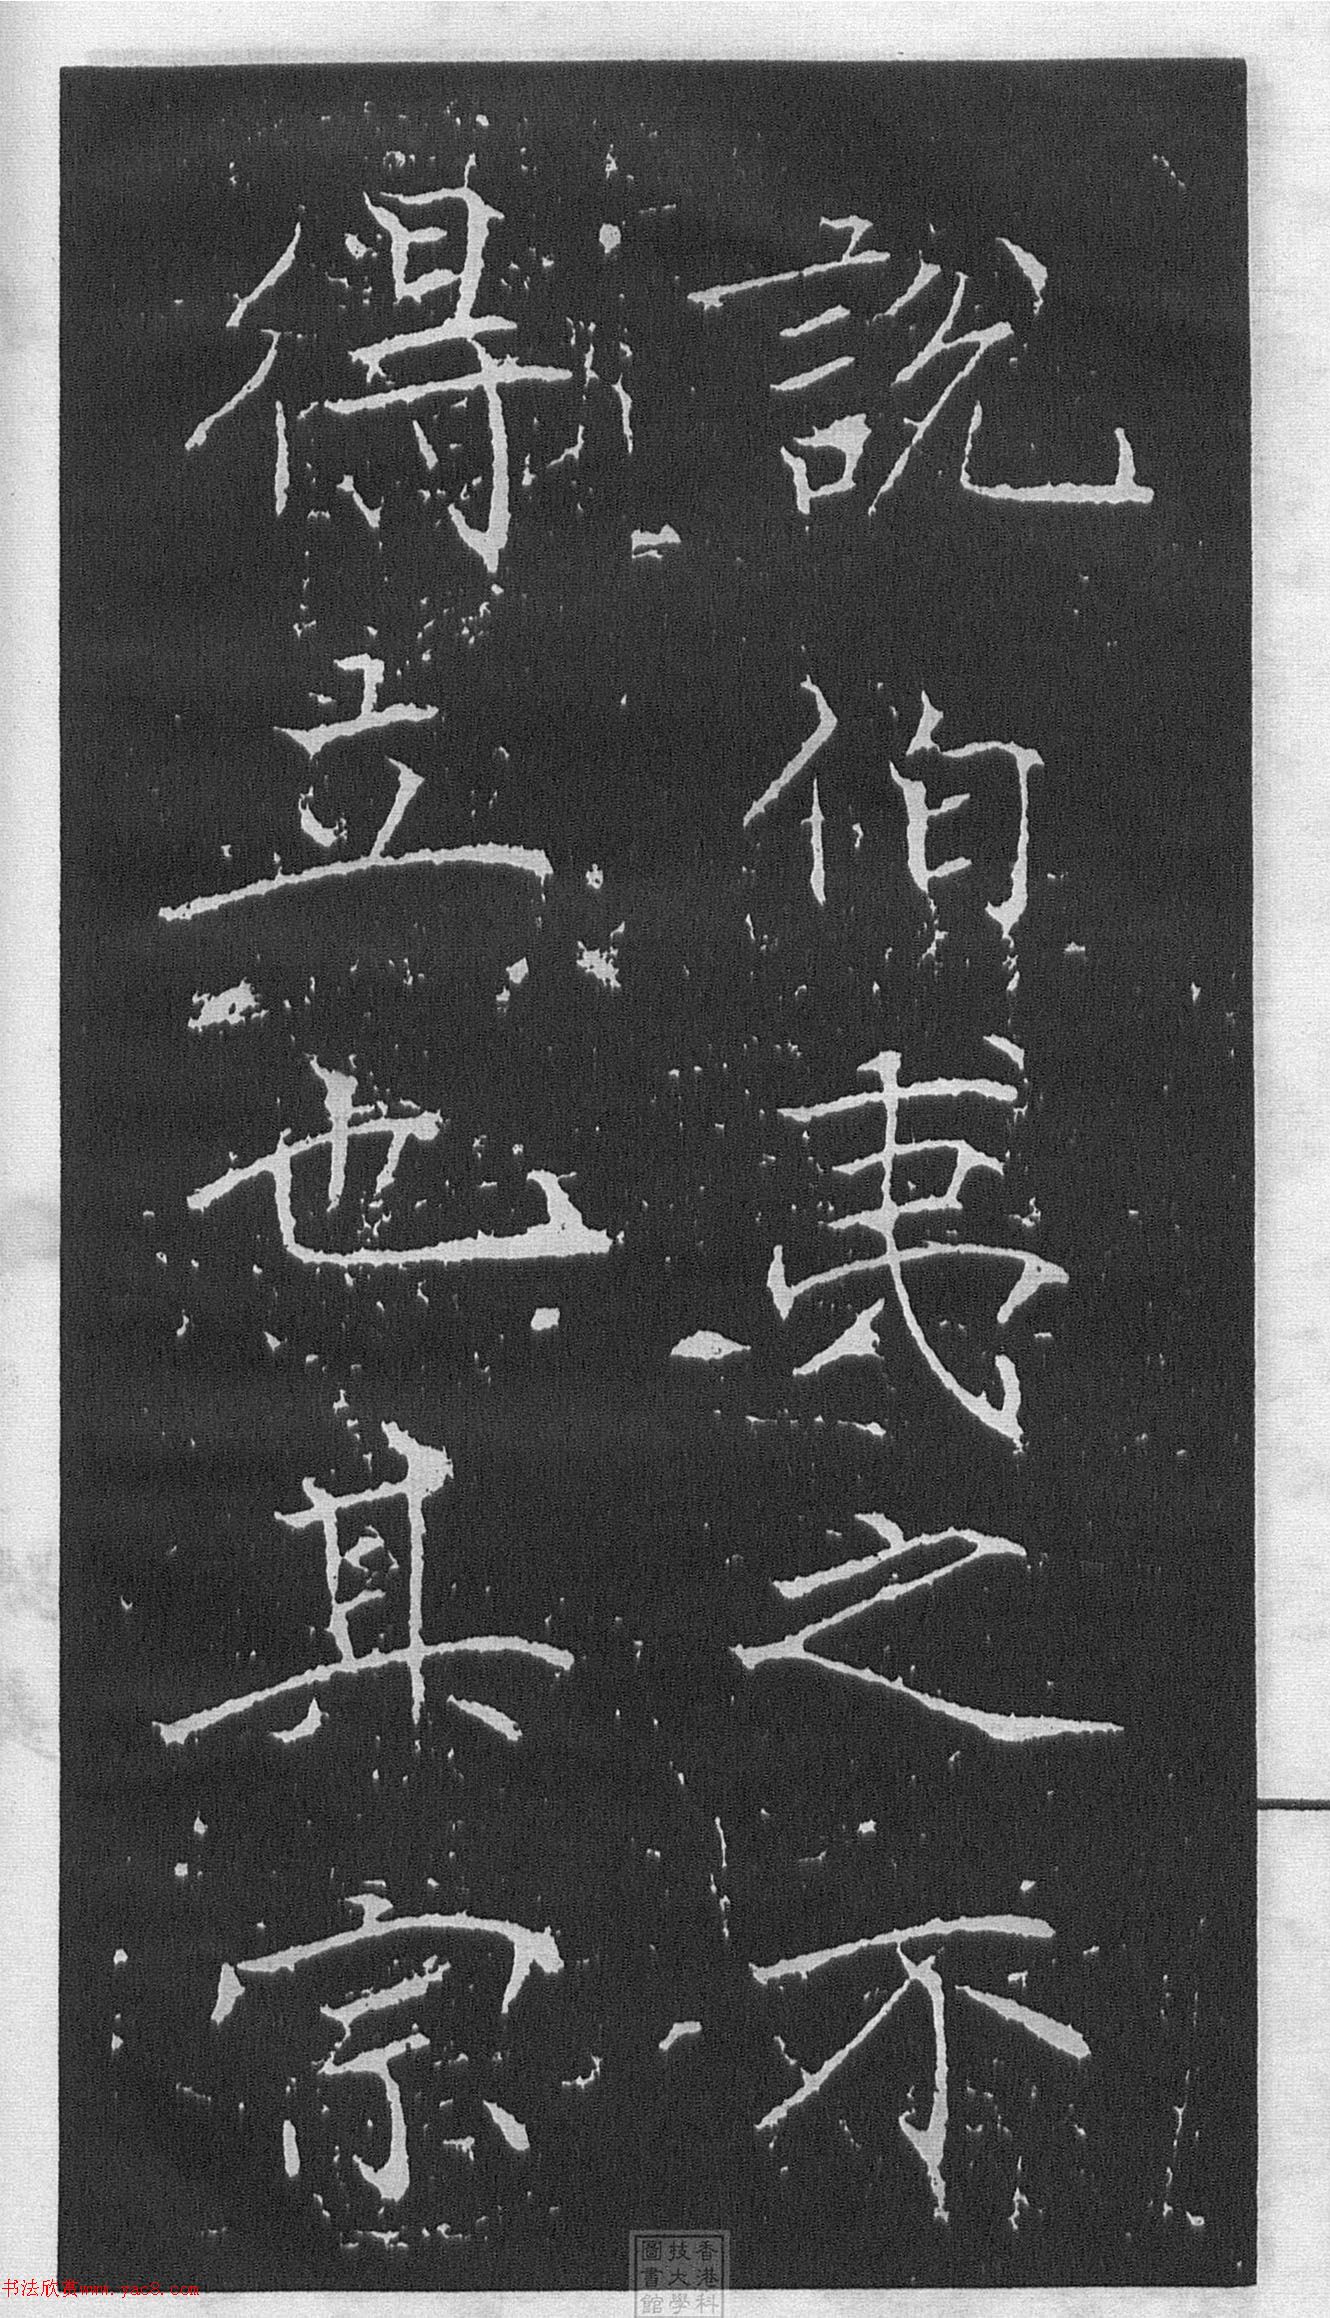 說伯夷之不
得立也其宗
香港科
技大學
圖書館
书法欣赏www.yac8.com